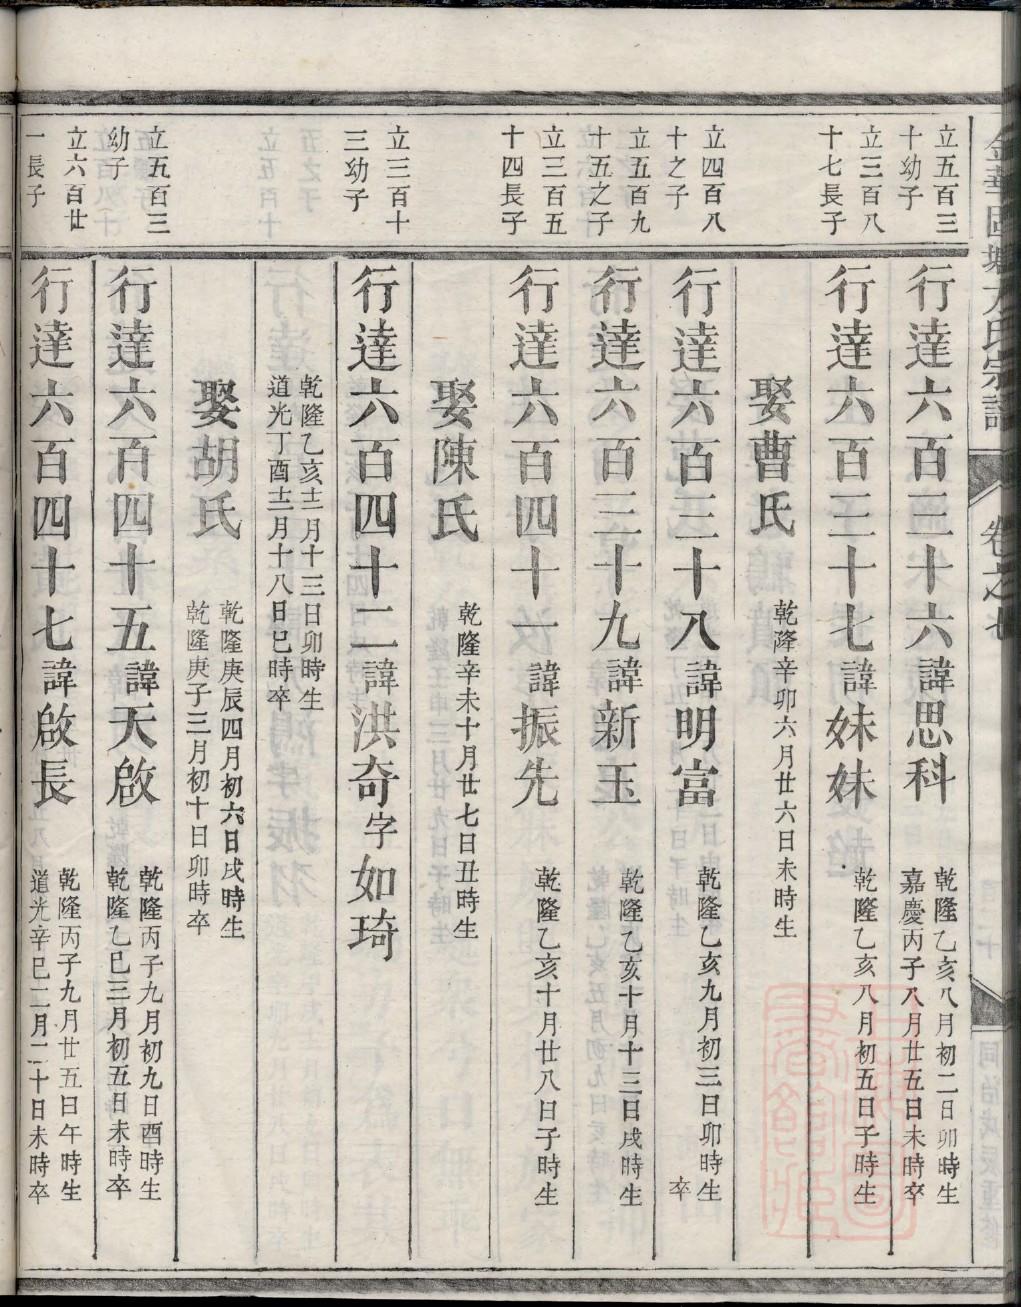 卷之七
同治戊辰重修
立五百三
十幼子
行達六百三十六諱思科
乾隆乙亥八月初二日卯時生
嘉慶丙子八月廿五日未時卒
立三百八
十七長子
行達六百三十七諱妹妹
乾隆乙亥八月初五日子時生
娶曹氏
乾隆辛卯六月廿六日未時生
立四百八
十之子
行達六百三十八諱明富
乾隆乙亥九月初三日卯時生
卒
立五百九
十五之子
行達六百三十九諱新玉
乾隆乙亥十月十三日戌時生
立三百五
十四長子
行達六百四十一諱振先
乾隆乙亥十月廿八日子時生
娶陳氏
乾隆辛未十月廿七日丑時生
立三百十
三幼子
行達六百四十二諱洪奇字如琦
乾隆乙亥十二月十三日卯時生
道光丁酉十二月十八日巳時卒
娶胡氏
乾隆庚辰四月初六日戌時生
乾隆庚子三月初十日卯時卒
立五百三
幼子
行達六百四十五諱天啟
乾隆丙子九月初九日酉時生
乾隆乙巳三月初五日未時卒
立六百廿
一長子
行達六百四十七諱啟長
乾隆丙子九月廿五日午時生
道光辛巳二月二十日未時卒